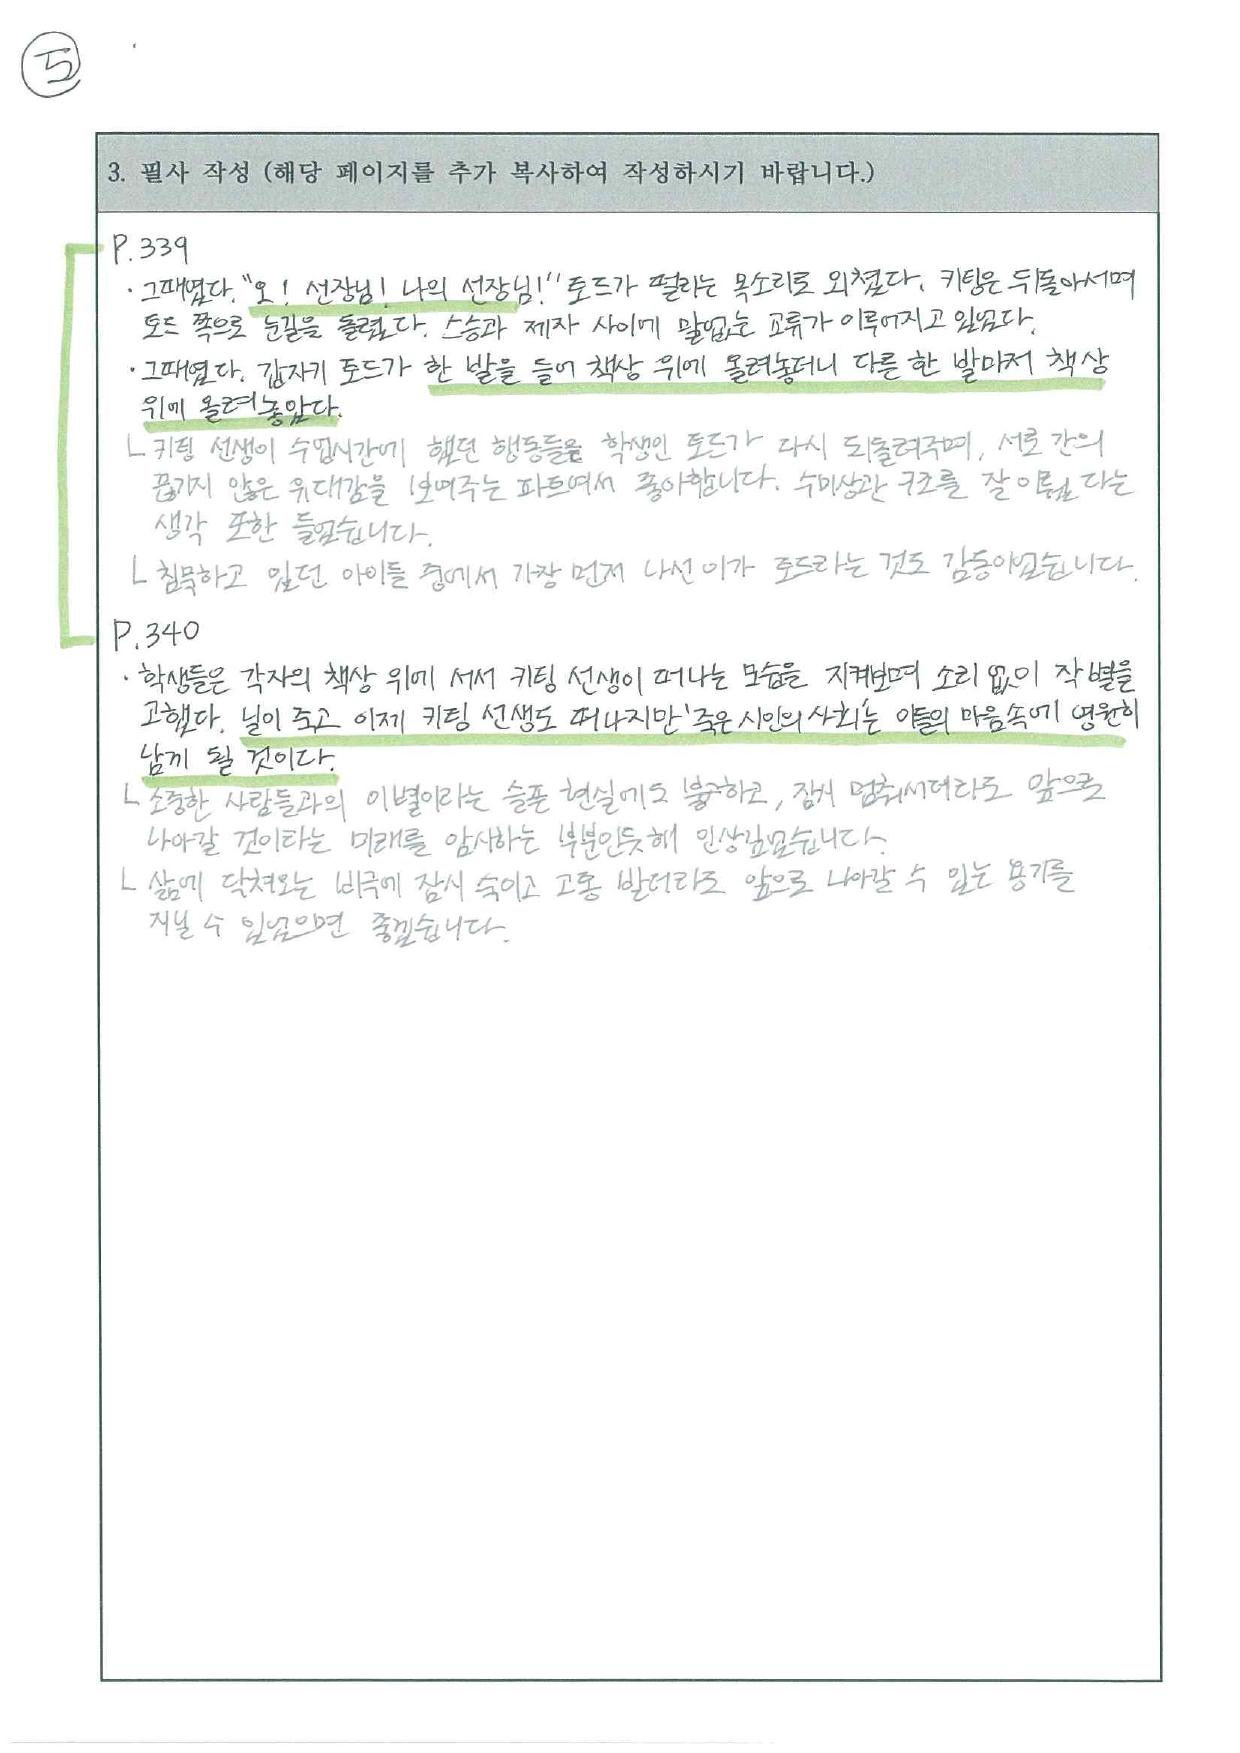 5
3. 필사 작성 (해당 페이지를 추가 복사하여 작성하시기 바랍니다.)
P.339
· 그때였다. "오! 선장님! 나의 선장님!" 토드가 떨리는 목소리로 외쳤다. 키팅은 뒤돌아서며
토드 쪽으로 눈길을 돌렸다. 스승과 제자 사이에 말없는 교류가 이루어지고 있었다.
· 그때였다. 갑자기 토드가 한 발을 들어 책상 위에 올려놓더니 다른 한 발마저 책상
위에 올려놓았다.
└ 키팅 선생이 수업시간에 했던 행동들을 학생인 토드가 다시 되돌려주며, 서로 간의
끊기지 않은 유대감을 보여주는 파트여서 좋아합니다. 수미상관 구조를 잘 이뤘다는
생각 또한 들었습니다.
└ 침묵하고 있던 아이들 중에서 가장 먼저 나선 이가 토드라는 것도 감동이었습니다.
P.340
· 학생들은 각자의 책상 위에 서서 키팅 선생이 떠나는 모습을 지켜보며 소리 없이 작별을
고했다. 닐이 죽고 이제 키팅 선생도 떠나지만 '죽은 시인의 사회'는 이들의 마음속에 영원히
남게 될 것이다.
└ 소중한 사람들과의 이별이라는 슬픈 현실에도 불구하고, 잠시 멈춰서더라도 앞으로
나아갈 것이라는 미래를 암시하는 부분인듯해 인상깊었습니다.
└ 삶에 닥쳐오는 비극에 잠시 숙이고 고통 받더라도 앞으로 나아갈 수 있는 용기를
지닐 수 있었으면 좋겠습니다.